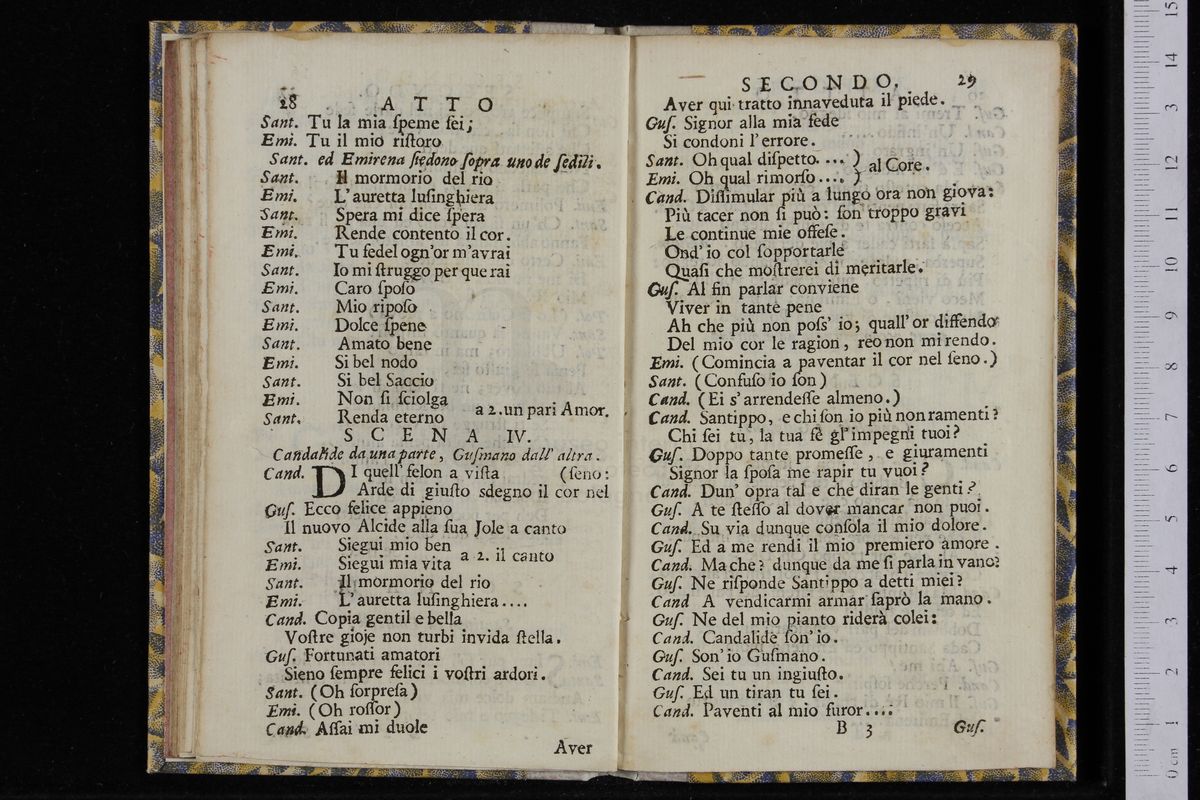 28 ATTO
Sant. Tu la mia ſpeme ſei;
Emi. Tu il mio riſtoro
Sant. ed Emirena ſiedono ſopra uno de ſedili.
Sant. Il mormorio del rio
Emi. L'auretta luſinghiera
Sant. Spera mi dice ſpera
Emi. Rende contento il cor.
Emi. Tu fedel ogn'or m'avrai
Sant. Io mi ſtruggo per que rai
Emi. Caro ſpoſo
Sant. Mio ripoſo
Emi. Dolce ſpene
Sant. Amato bene
Emi. Si bel nodo
Sant. Si bel Saccio
Emi. Non ſi ſciolga
Sant. Renda eterno a 2. un pari Amor.
SCENA IV.
Candalide da una parte, Guſmano dall' altra.
Cand. DI quell' felon a viſta (ſeno:
Arde di giuſto sdegno il cor nel
Guſ. Ecco felice appieno
Il nuovo Alcide alla ſua Jole a canto
Sant. Siegui mio ben
Emi. Siegui mia vita a 2. il canto
Sant. Il mormorio del rio
Emi. L'auretta luſinghiera....
Cand. Copia gentil e bella
Voſtre gioje non turbi invida ſtella.
Guſ. Fortunati amatori
Sieno ſempre felici i voſtri ardori.
Sant. (Oh ſorpreſa)
Emi. (Oh roſſor)
Cand. Aſſai mi duole
Aver
SECONDO. 29
Aver qui tratto innaveduta il piede.
Guſ. Signor alla mia fede
Si condoni l'errore.
Sant. Oh qual diſpetto.... )
Emi. Oh qual rimorſo.... ) al Core.
Cand. Diſſimular più a lungo ora non giova:
Più tacer non ſi può: ſon troppo gravi
Le continue mie offeſe.
Ond' io col ſopportarle
Quaſi che moſtrerei di meritarle.
Guſ. Al fin parlar conviene
Viver in tante pene
Ah che più non poſs' io; quall' or diffendo
Del mio cor le ragion, reo non mi rendo.
Emi. (Comincia a paventar il cor nel ſeno.)
Sant. (Confuſo io ſon)
Cand. (Ei s'arrendeſſe almeno.)
Cand. Santippo, e chi ſon io più non ramenti?
Chi ſei tu, la tua fè gl'impegni tuoi?
Guſ. Doppo tante promeſſe, e giuramenti
Signor la ſpoſa me rapir tu vuoi?
Cand. Dun' opra tal e che diran le genti?
Guſ. A te ſteſſo al dover mancar non puoi.
Cand. Su via dunque conſola il mio dolore.
Guſ. Ed a me rendi il mio premiero amore.
Cand. Ma che? dunque da me ſi parla in vano?
Guſ. Ne riſponde Santippo a detti miei?
Cand A vendicarmi armar ſaprò la mano.
Guſ. Ne del mio pianto riderà colei:
Cand. Candalide ſon' io.
Guſ. Son' io Guſmano.
Cand. Sei tu un ingiuſto.
Guſ. Ed un tiran tu ſei.
Cand. Paventi al mio furor....
B 3 Guſ.